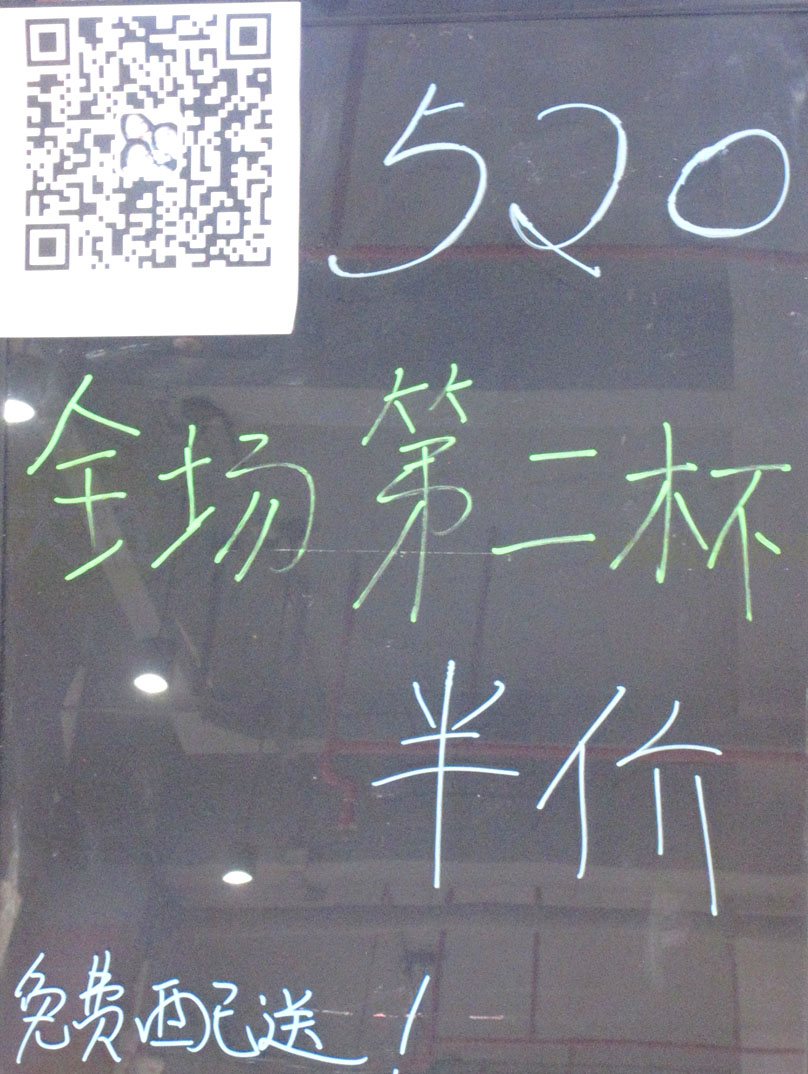 520
全场第二杯
半价
免费配送！